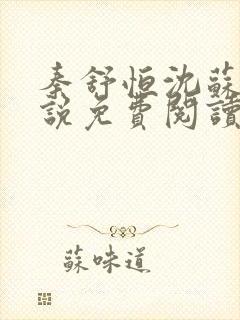 秦舒恒沈蘇
説免費閱讀
蘇味道